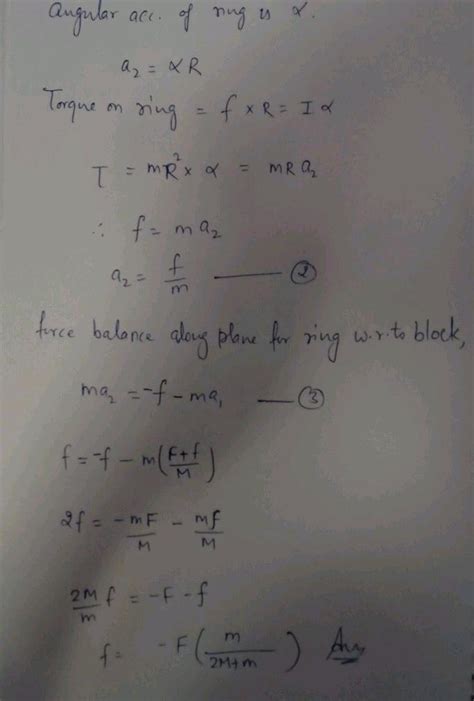 Angular acc. of ring is α.
a₂ = αR
Torque on ring = f × R = I α
T = mR² × α = m R a₂
∴ f = m a₂
a₂ = f/m —— ②
force balance along plane for ring w.r.to block,
ma₂ = -f - ma₁ —— ③
f = -f - m((F+f)/M)
2f = -mF/M - mf/M
2M/m f = -F - f
f = -F(m/(2M+m)) Ans